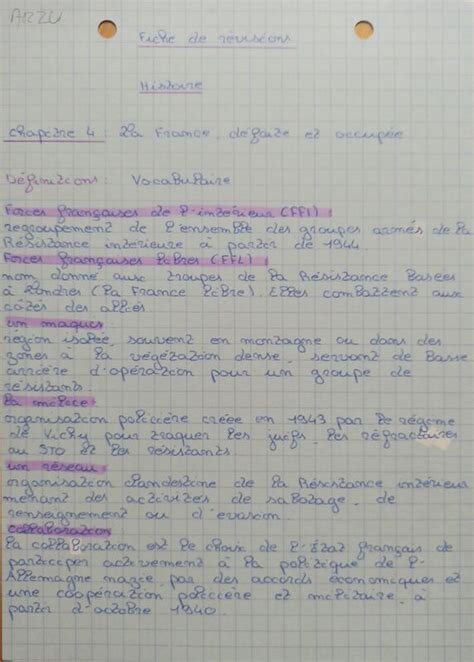 ARZU
Fiche de révisions
Histoire
Chapitre 4 : La France, défaite et occupée
Définitions : Vocabulaire
Forces françaises de l'intérieur (FFI) :
regroupement de l'ensemble des groupes armés de la
Résistance intérieure à partir de 1944.
Forces françaises libres (FFL) :
nom donné aux troupes de la Résistance basées
à Londres (la France libre). Elles combattent aux
côtés des alliés
un maquis :
région isolée, souvent en montagne ou dans des
zones à la végétation dense, servant de base
arrière d'opération pour un groupe de
résistants.
la milice
organisation policière créée en 1943 par le régime
de Vichy pour traquer les juifs, les réfractaires
au STO et les résistants.
un réseau :
organisation clandestine de la Résistance intérieur
menant des activités de sabotage, de
renseignement ou d'évasion.
collaboration
la collaboration est le choix de l'État français de
participer activement à la politique de l'
Allemagne nazie, par des accords économiques et
une coopération policière et militaire, à
partir d'octobre 1940.